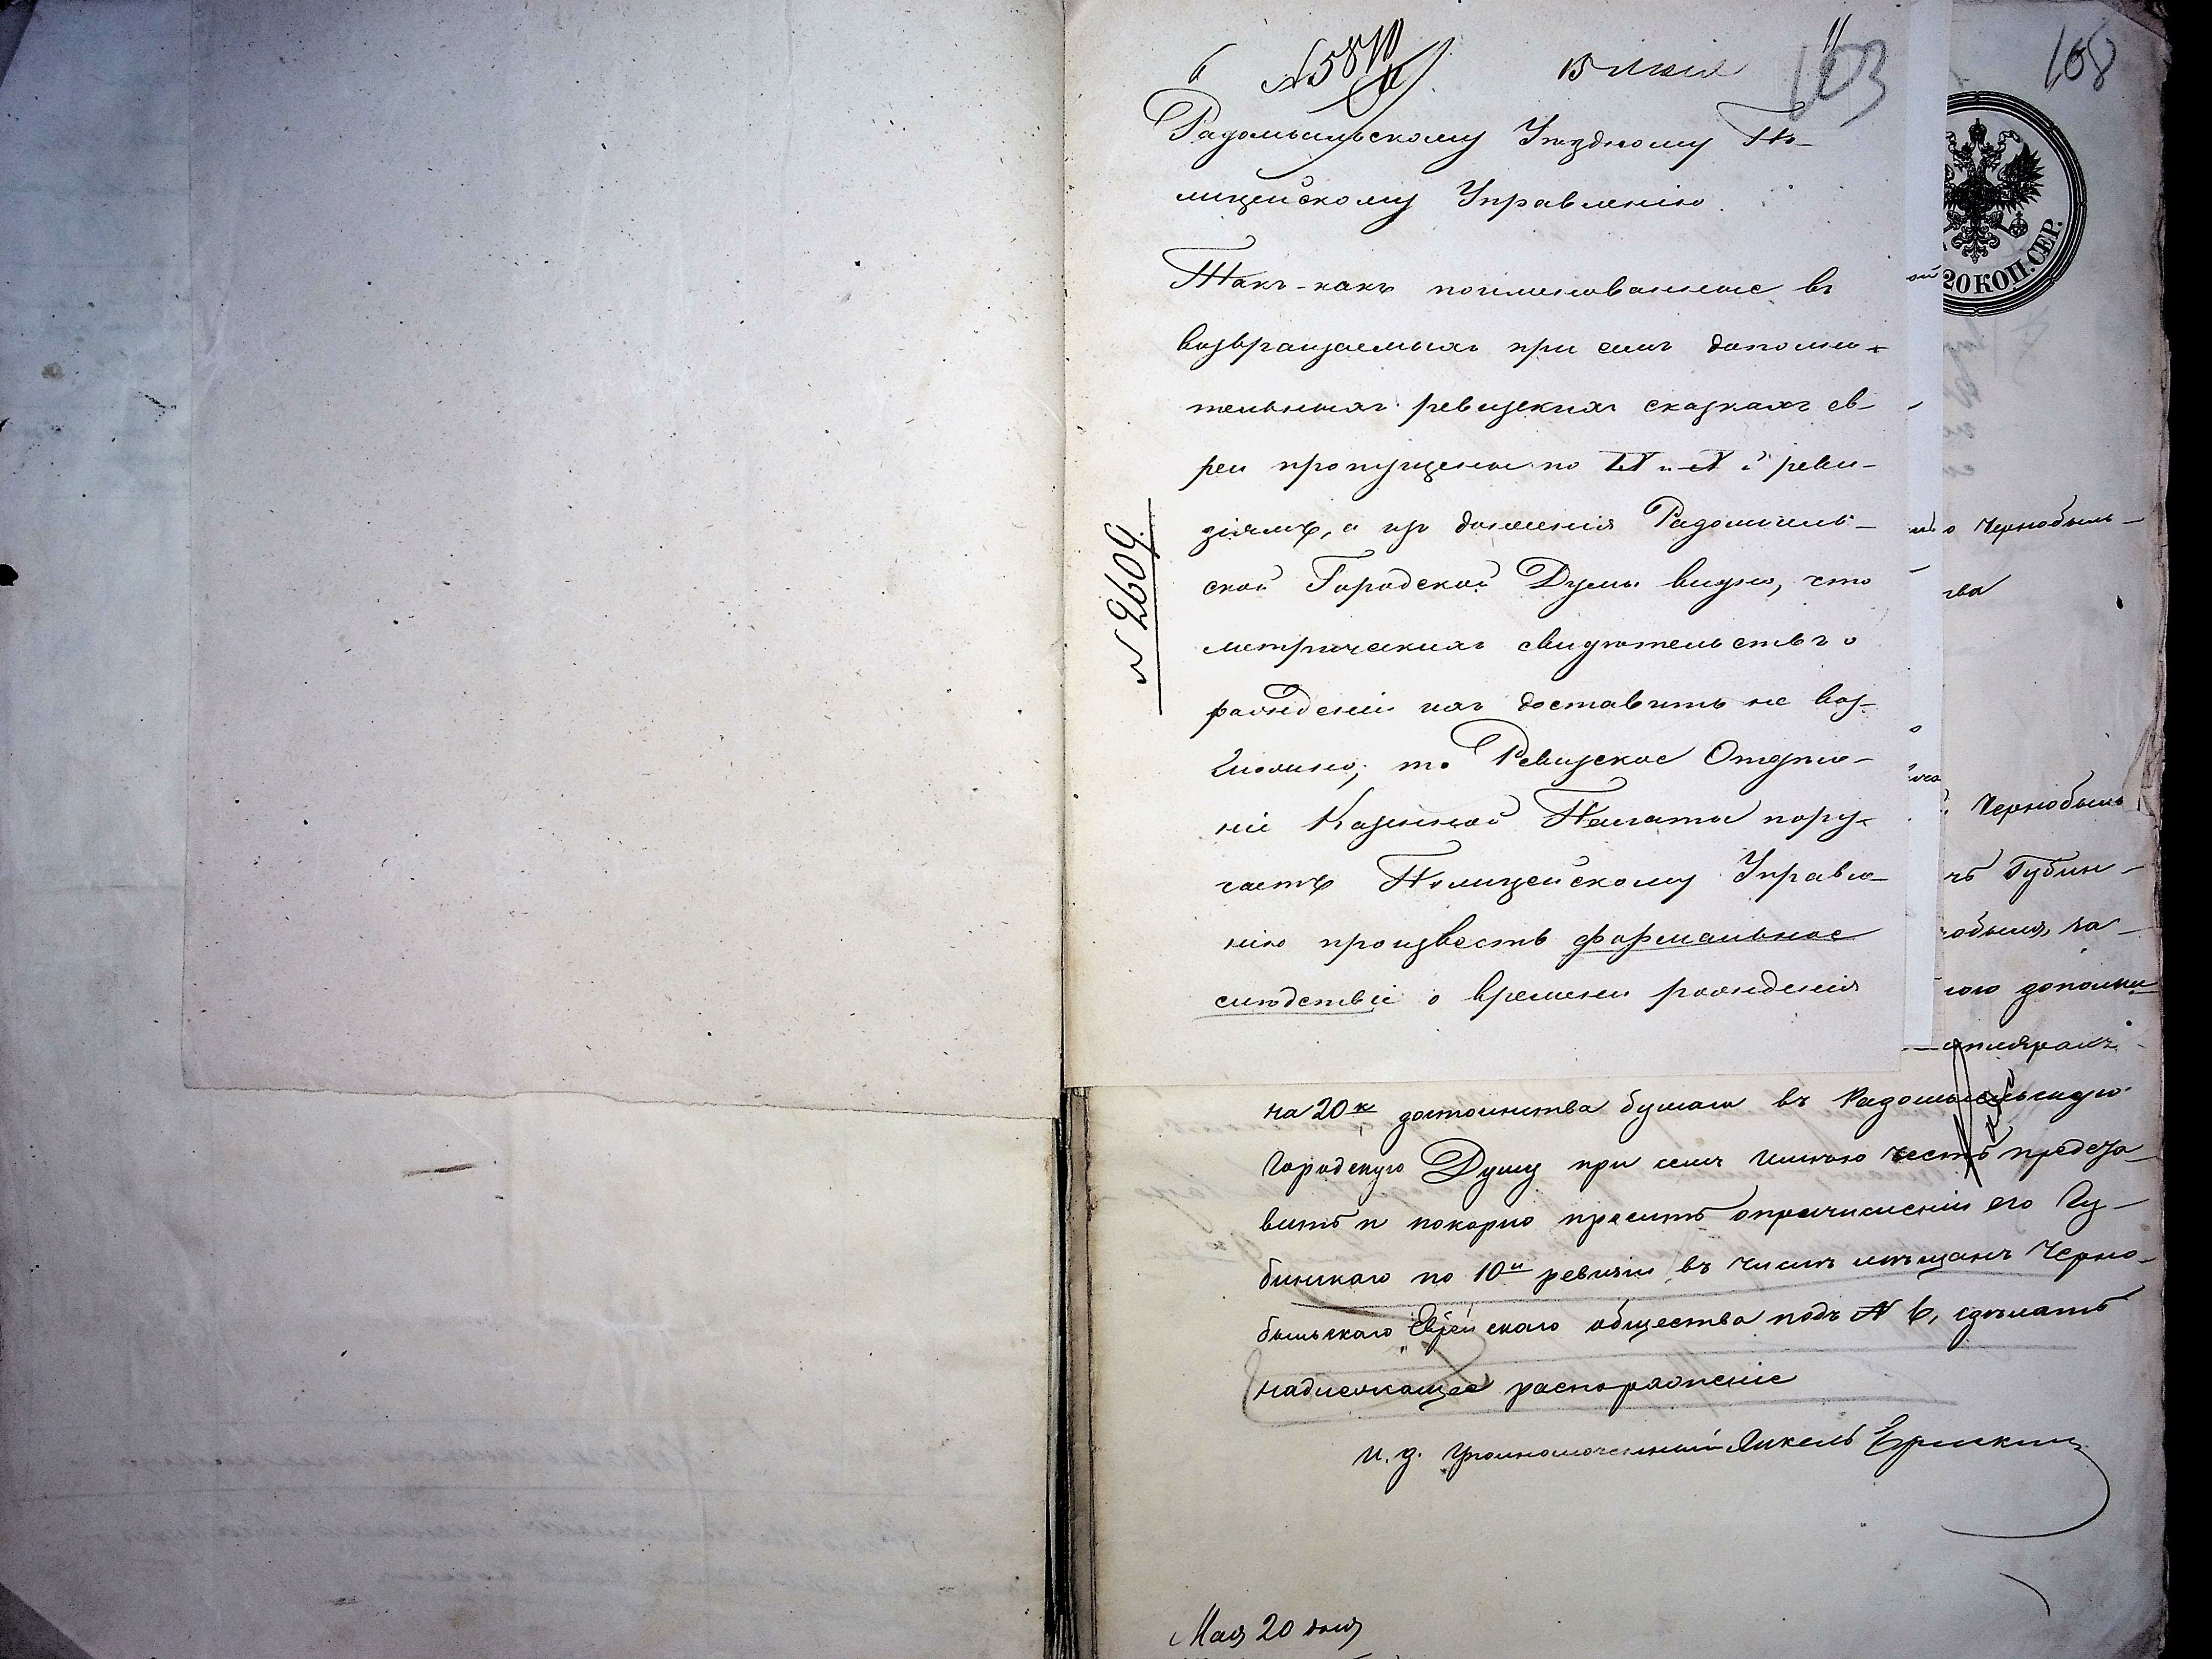 6 15 Июня
103
168
20 КОП. СЕР.
Радомысльскому Уѣздному По-
лицейскому Управленію.
Такъ-какъ поименованные въ
возвращаемыхъ при семъ дополни-
тельныхъ ревизскихъ сказкахъ ев-
реи пропущены по IX и X й реви-
зіямъ, а изъ донесенія Радомысль-
ской Городской Думы видно, что
метрическихъ свидѣтельствъ о
рожденіи ихъ доставить не воз-
можно; то Ревизское Отдѣле-
ніе Казенной Палаты пору-
чаетъ Полицейскому Управле-
нію произвесть формальное
слѣдствіе о времени рожденія
N 2609.
о Чернобыль-
тва
Чернобыль
чъ Губин-
обыля, за-
ного дополни
на 20 к достоинства бумаги въ Радомысльскую
Городскую Думу при семъ имѣю честь предста-
вить и покорно просить о причисленіи его Гу-
бинскаго по 10й ревизіи въ число мѣщанъ Черно-
быльскаго Еврейскаго общества подъ N 6, сдѣлать
надлежащее распоряженіе
И. д. Уполномоченный Янкель
Мая 20 дня